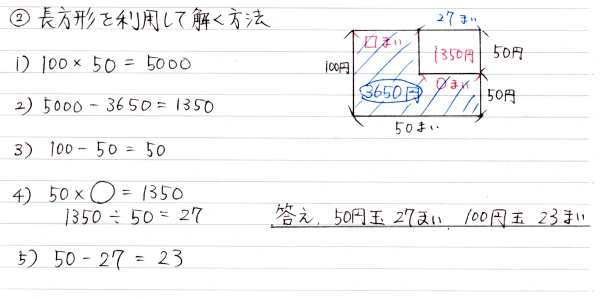 ② 長方形を利用して解く方法
1) 100 × 50 = 5000
2) 5000 - 3650 = 1350
3) 100 - 50 = 50
4) 50 × ◯ = 1350
1350 ÷ 50 = 27
5) 50 - 27 = 23
27まい
□まい
1350円
50円
100円
○まい
3650円
50円
50まい
答え. 50円玉 27まい 100円玉 23まい